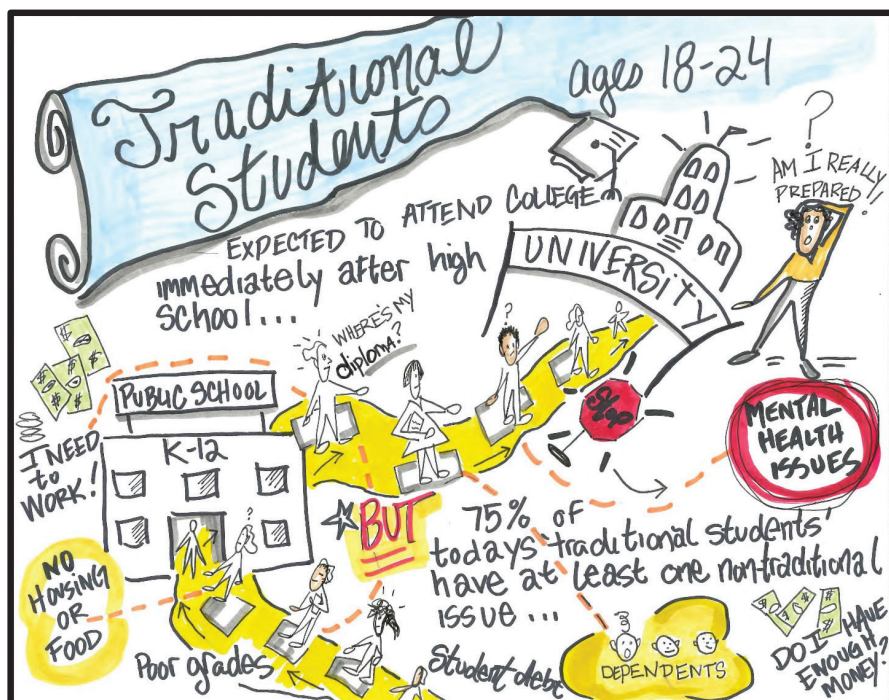 Traditional
Students
ages 18-24
?
AM I REALLY
PREPARED!!
EXPECTED TO ATTEND COLLEGE
immediately after high
school...
UNIVERSITY
WHERE'S MY
diploma?
?
$
$
$
$
$
$
PUBLIC SCHOOL
K-12
I NEED
to
WORK!
MENTAL
HEALTH
ISSUES
BUT
75% of
todays 'traditional students'
have at least one non-traditional
issue...
?
NO
HOUSING
OR
FOOD
Poor grades
Student debt
DEPENDENTS
DO I HAVE
ENOUGH
MONEY?